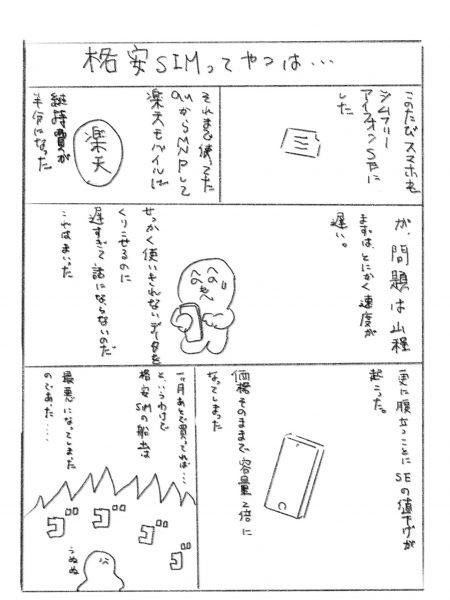 格安SIMってやつは…
このたびスマホを
シムフリー
アイフォンSEに
した
それまで使ってた
auからMNPして
楽天モバイルに
楽天
維持費が
半分になった
が、問題は山積
まずは、とにかく速度が
遅い。
せっかく使いきれないデータを
くりこせるのに
遅すぎて話にならないのだ
これはまいった
へのへの
もへじ
更に腹立つことにSEの値下げが
起こった。
価格そのままで容量2倍に
なってしまった
一ヶ月あとで買ってれば…
と、いうわけで
格安SIMの船出は
最悪になってしまった
のであった…
ゴゴゴゴ
うぬぬ